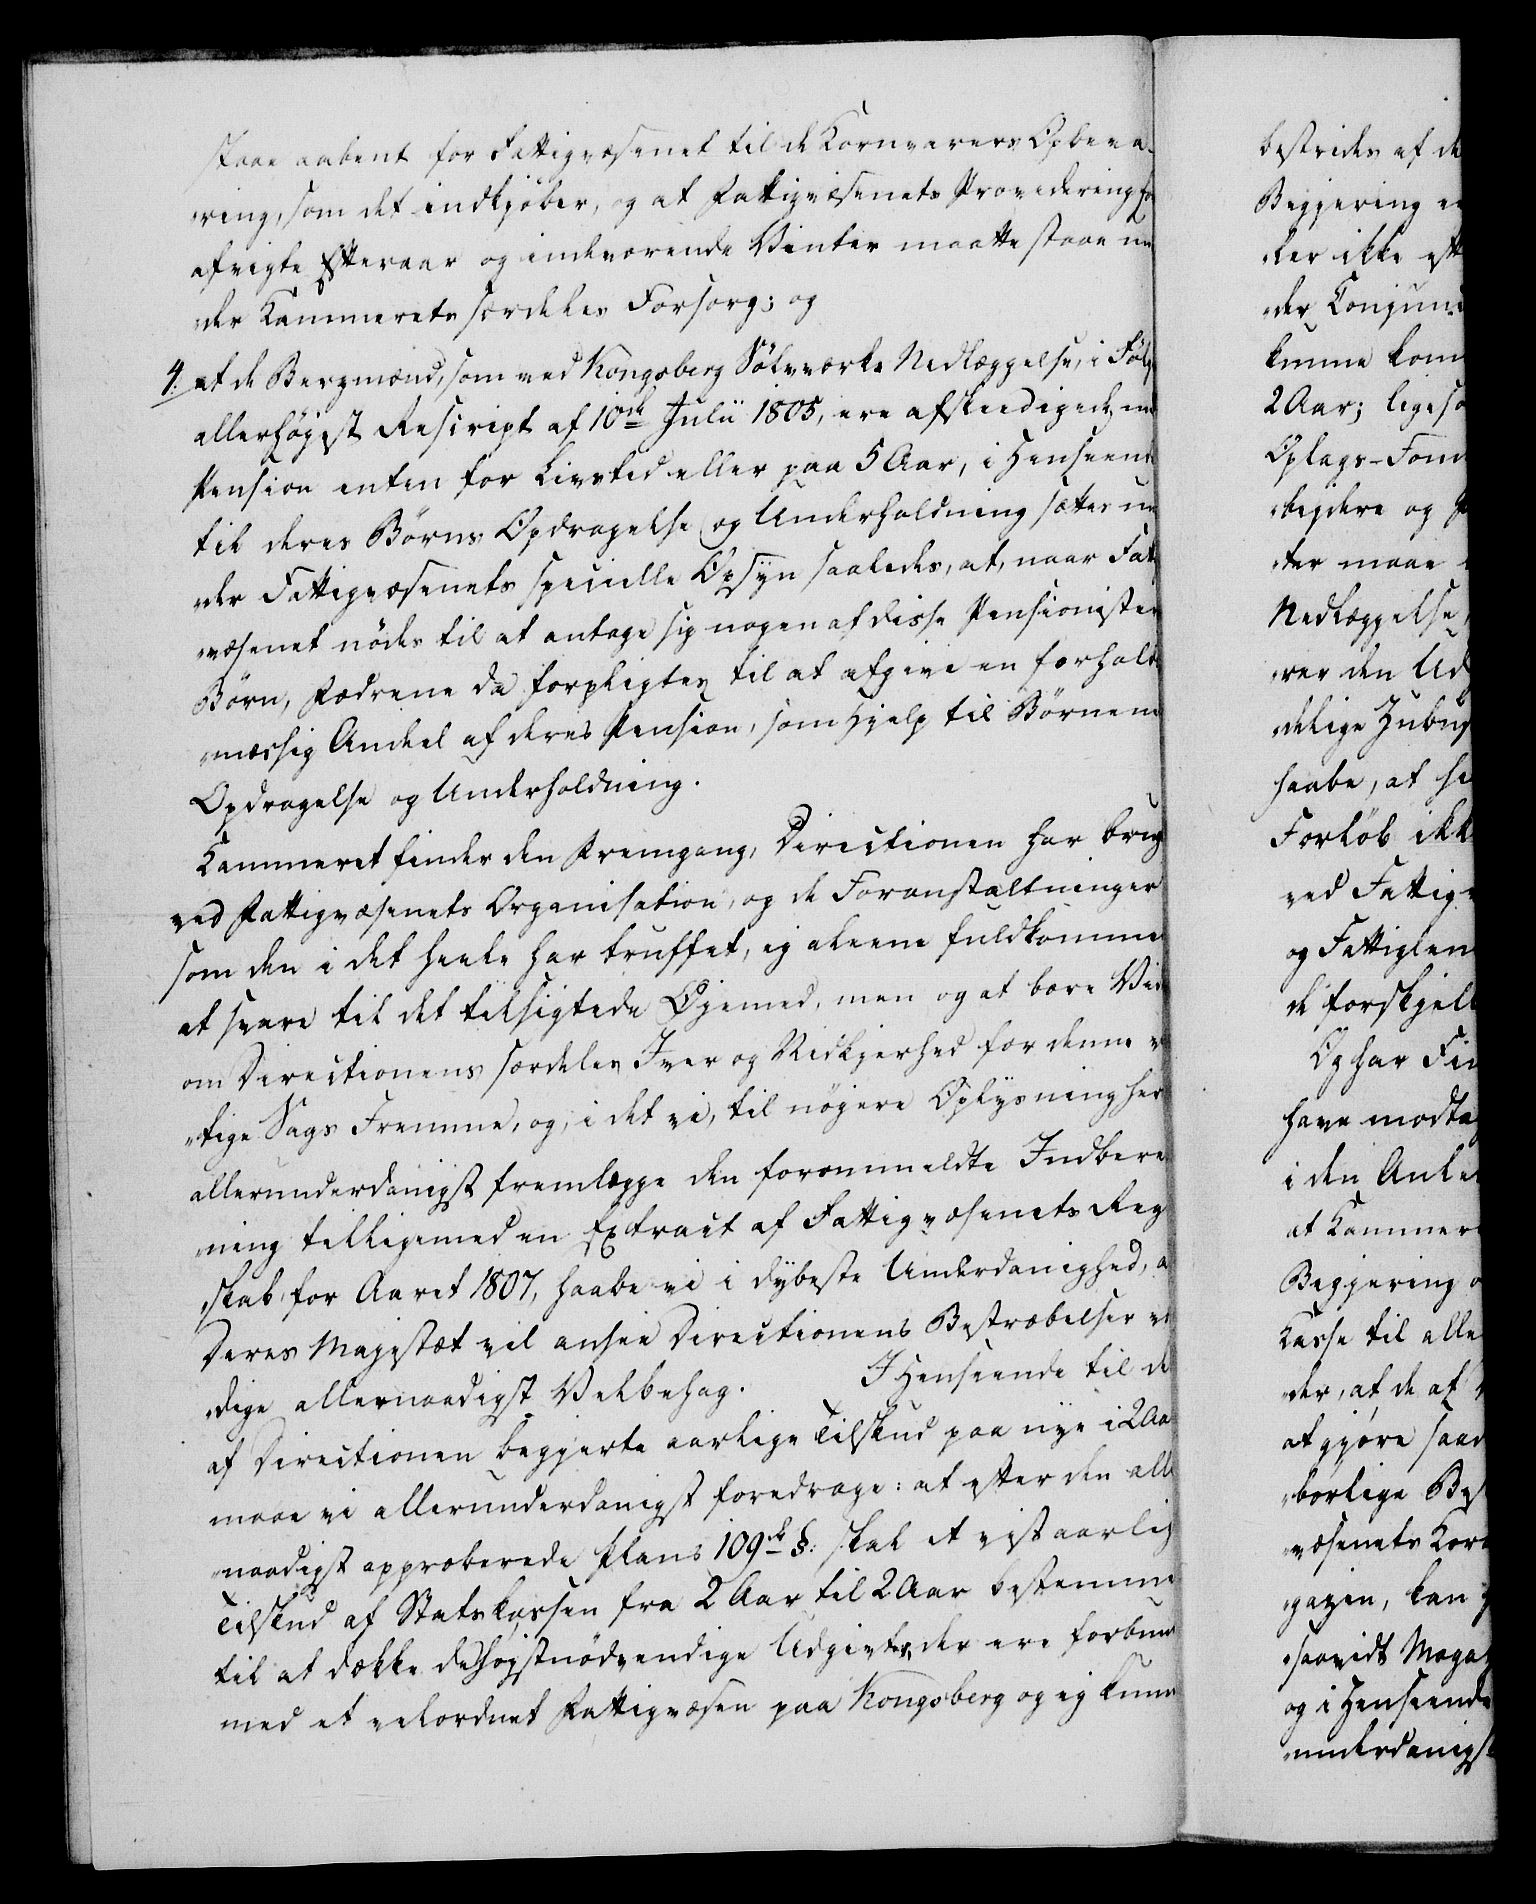 staae aabent for Fattigvæsenet til de Kornvarers Opbeva-
„ring, som det indkjöber, og at Fattigvæsenets Providering for
afvigte Efteraar og indeværende Vinter maatte staae un
„der Kammerets særdeles Forsorg; og
4. at de Bergmænd, som ved Kongsberg Sölvværks Nedlæggelse, i Fölg
allerhöyest Rescript af 10de Julii 1805, ere afskeedigede med
Pension enten for Livstid eller paa 5 Aar, i Henseende
til deres Börns Opdragelse og Underholdning sættes un
„der Fattigvæsenets specielle Opsyn saaledes, at, naar Fattig
„væsenet nödes til at antage sig nogen af disse Pensionisters
Börn, Fædrene da forpligtes til at afgive en forholds
„mæssig Andeel af deres Pension, som Hjelp til Börnenes
Opdragelse og Underholdning.
Kammeret finder den Fremgang, Directionen har brug
ved Fattigvæsenets Organisation, og de Foranstaltninger
som den i det heele har truffet, ej aleene fuldkommen
at svare til det tilsigtede Öjemed, men og at bære Vid
om Directionens særdeles Iver og Nidkjerhed for denne v
„tige Sags Fremme, og, i det vi, til nöjere Oplysning her
allerunderdanigst fremlægge den forommeldte Indberet
„ning tilligemed en Extract af Fattigvæsenets Reg
„skab for Aaret 1807, haabe vi i dybeste Underdanighed, a
Deres Majestæt vil ansee Directionens Bestræbelser v
„dige allernaadigst Velbehag. I Henseende til de
af Directionen begjerte aarlige Tilskud paa nye i 2 Aar
maae vi allerunderdanigst foredrage: at efter den aller
„naadigst approberede Plans 109de §: skal et vist aarlig
Tilskud af Statskassen fra 2 Aar til 2 Aar bestemme
til at dække de höjstnödvendige Udgivter, der ere forbund
med et velordnet Fattigvæsen paa Kongsberg og ej kunn
bestrides af de
Begjering e
„ker ikke eft
„der Conjun
kunne kom
2 Aar; ligesa
Oplags-Fon
„bejdere og
„ter maae
Nedlæggelse
„rer den Ud
„delige Zubuy
haabe, at
Forlöb ikk
ved Fattig
og Fattiglem
de forskjell
Og har Fin
have modta
i den Anle
at Kammer
Begjering
Kasse til alle
„der, at de af
at gjöre saa
„börlige Bes
„væsenets Kor
„gazin, kan
„saavidt Maga
og i Henseende
„underdanigst